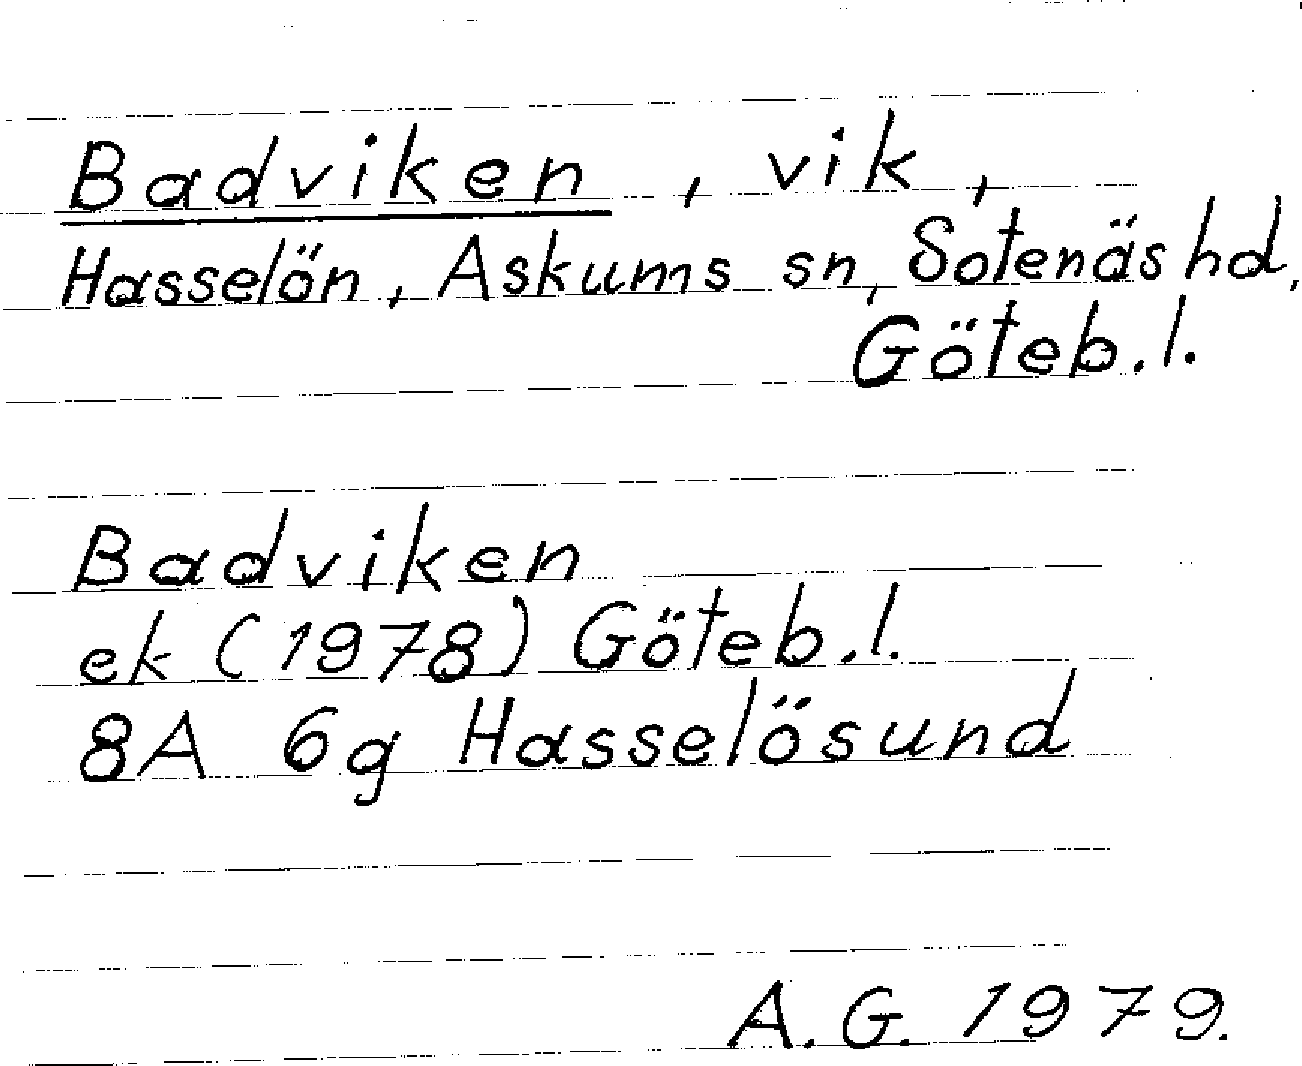 Badviken, vik,
Hasselön, Askums sn, Sotenäs hd,
Göteb. l.
Badviken
ek (1978) Göteb. l.
8A 6g Hasselösund
A. G. 1979.